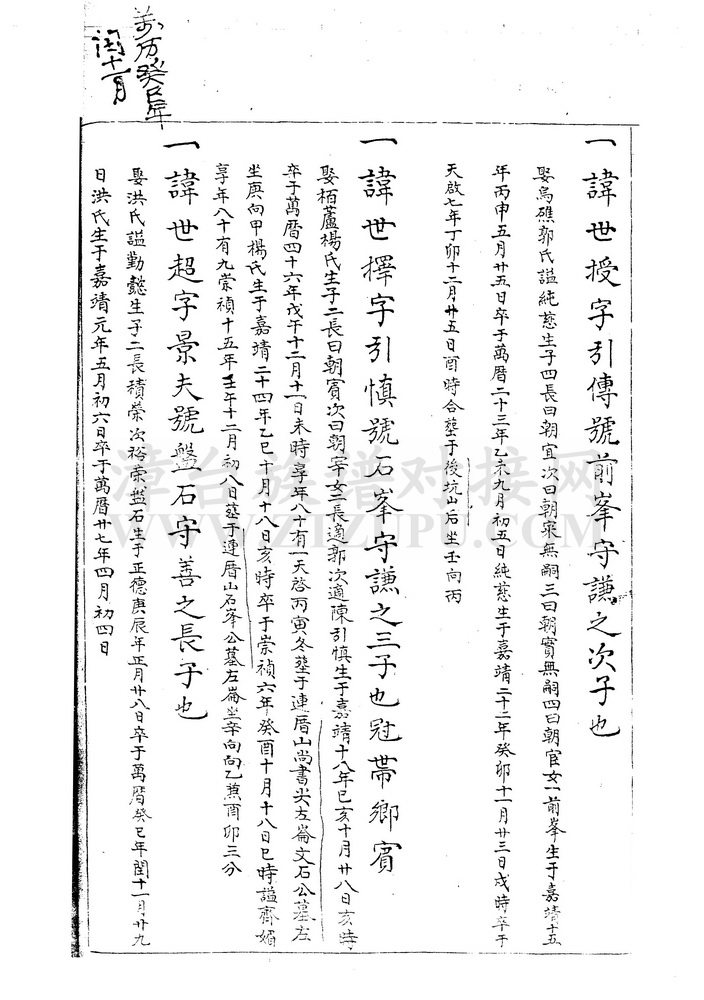 一諱世授字引傳號前峯守謙之次子也
娶烏礁郭氏謚純慈生子四長曰朝宜次曰朝宷無嗣三曰朝實無嗣四曰朝官女一前峯生于嘉靖十五
年丙申五月廿五日卒于萬曆二十三年乙未九月初五日純慈生于嘉靖二十二年癸卯十一月廿三日戌時卒于
天啟七年丁卯十二月廿五日酉時合塟于後坑山后坐壬向丙
一諱世擇字引慎號石峯守謙之三子也冠帶鄉賓
娶栢蘆楊氏生子二長曰朝賓次曰朝宰女二長適郭次適陳引慎生于嘉靖十八年己亥十月廿八日亥時
卒于萬曆四十六年戊午十二月十一日未時享年八十有一天啓丙寅冬塟于連厝山尚書尖左崙文石公墓左
坐庚向甲楊氏生于嘉靖二十四年乙巳十月十八日亥時卒于崇禎六年癸酉十月十八日巳時謚齊媚
享年八十有九崇禎十五年壬午十二月初八日塟于連厝山石峯公墓左崙坐辛向乙兼酉卯三分
一諱世超字景夫號盤石守善之長子也
娶洪氏謚勤懿生子二長積榮次裕榮盤石生于正德庚辰年正月廿八日卒于萬曆癸巳年閏十一月廿九
日洪氏生于嘉靖元年五月初六日卒于萬曆廿七年四月初四日
万历癸巳年
闰十一月
漳台族谱对接网
WWW.ZIZUPU.COM